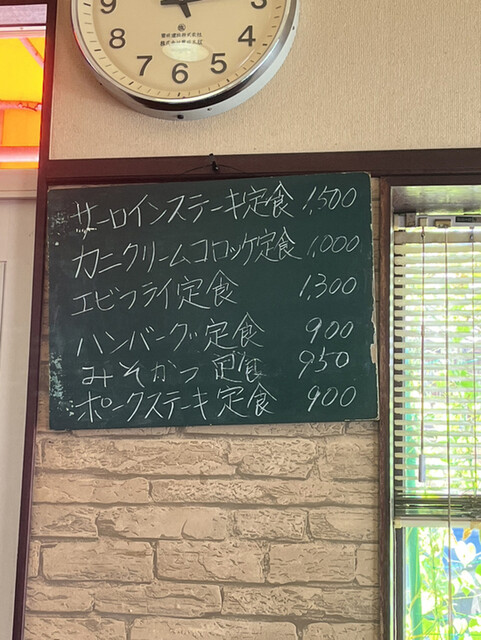 3
9
4
8
5
7
6
サーロインステーキ定食 1,500
カニクリームコロッケ定食 1,000
エビフライ定食 1,300
ハンバーグ定食 900
みそかつ定食 950
ポークステーキ定食 900